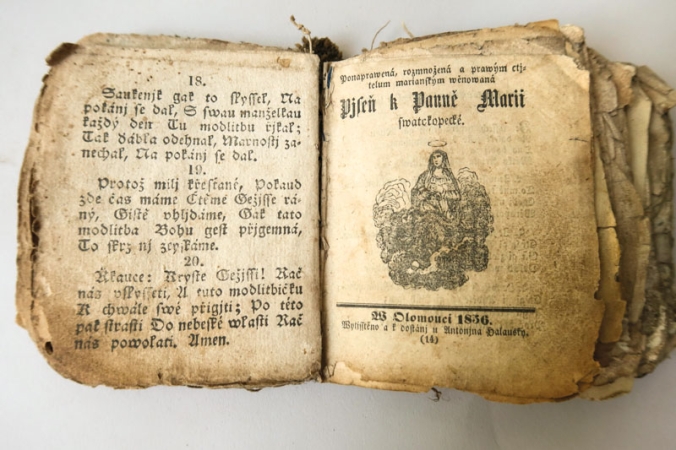 18.
Saukenjk gak to slyssel, Na
pokánj se dal, S swau manželkau
každý den Tu modlitbu řjkal;
Tak ďábla odehnal, Marnostj za-
nechal, Na pokánj se dal.
19.
Protož milj křesťané, Pokaud
zde čas máme Ctěme Gežjsse rá-
ny, Gistě vhljdáme, Gak tato
modlitba Bohu gest přjgemná,
To skrz nj zeyskáme.
20.
Řkauce: Kryste Gežjssi! Rač
nás vslysseti, A tuto modlitbičku
K chwále swé přigjti; Po této
pak strasti Do nebeské wlasti Rač
nás powolati. Amen.
Ponaprawená, rozmnožená a prawým ctj-
telum marianským wěnowaná
Pjseň k Panně Marii
swatokopecké.
W Olomouci 1856.
Wytisštěno a k dostánj u Antonjna Halausky.
(14)